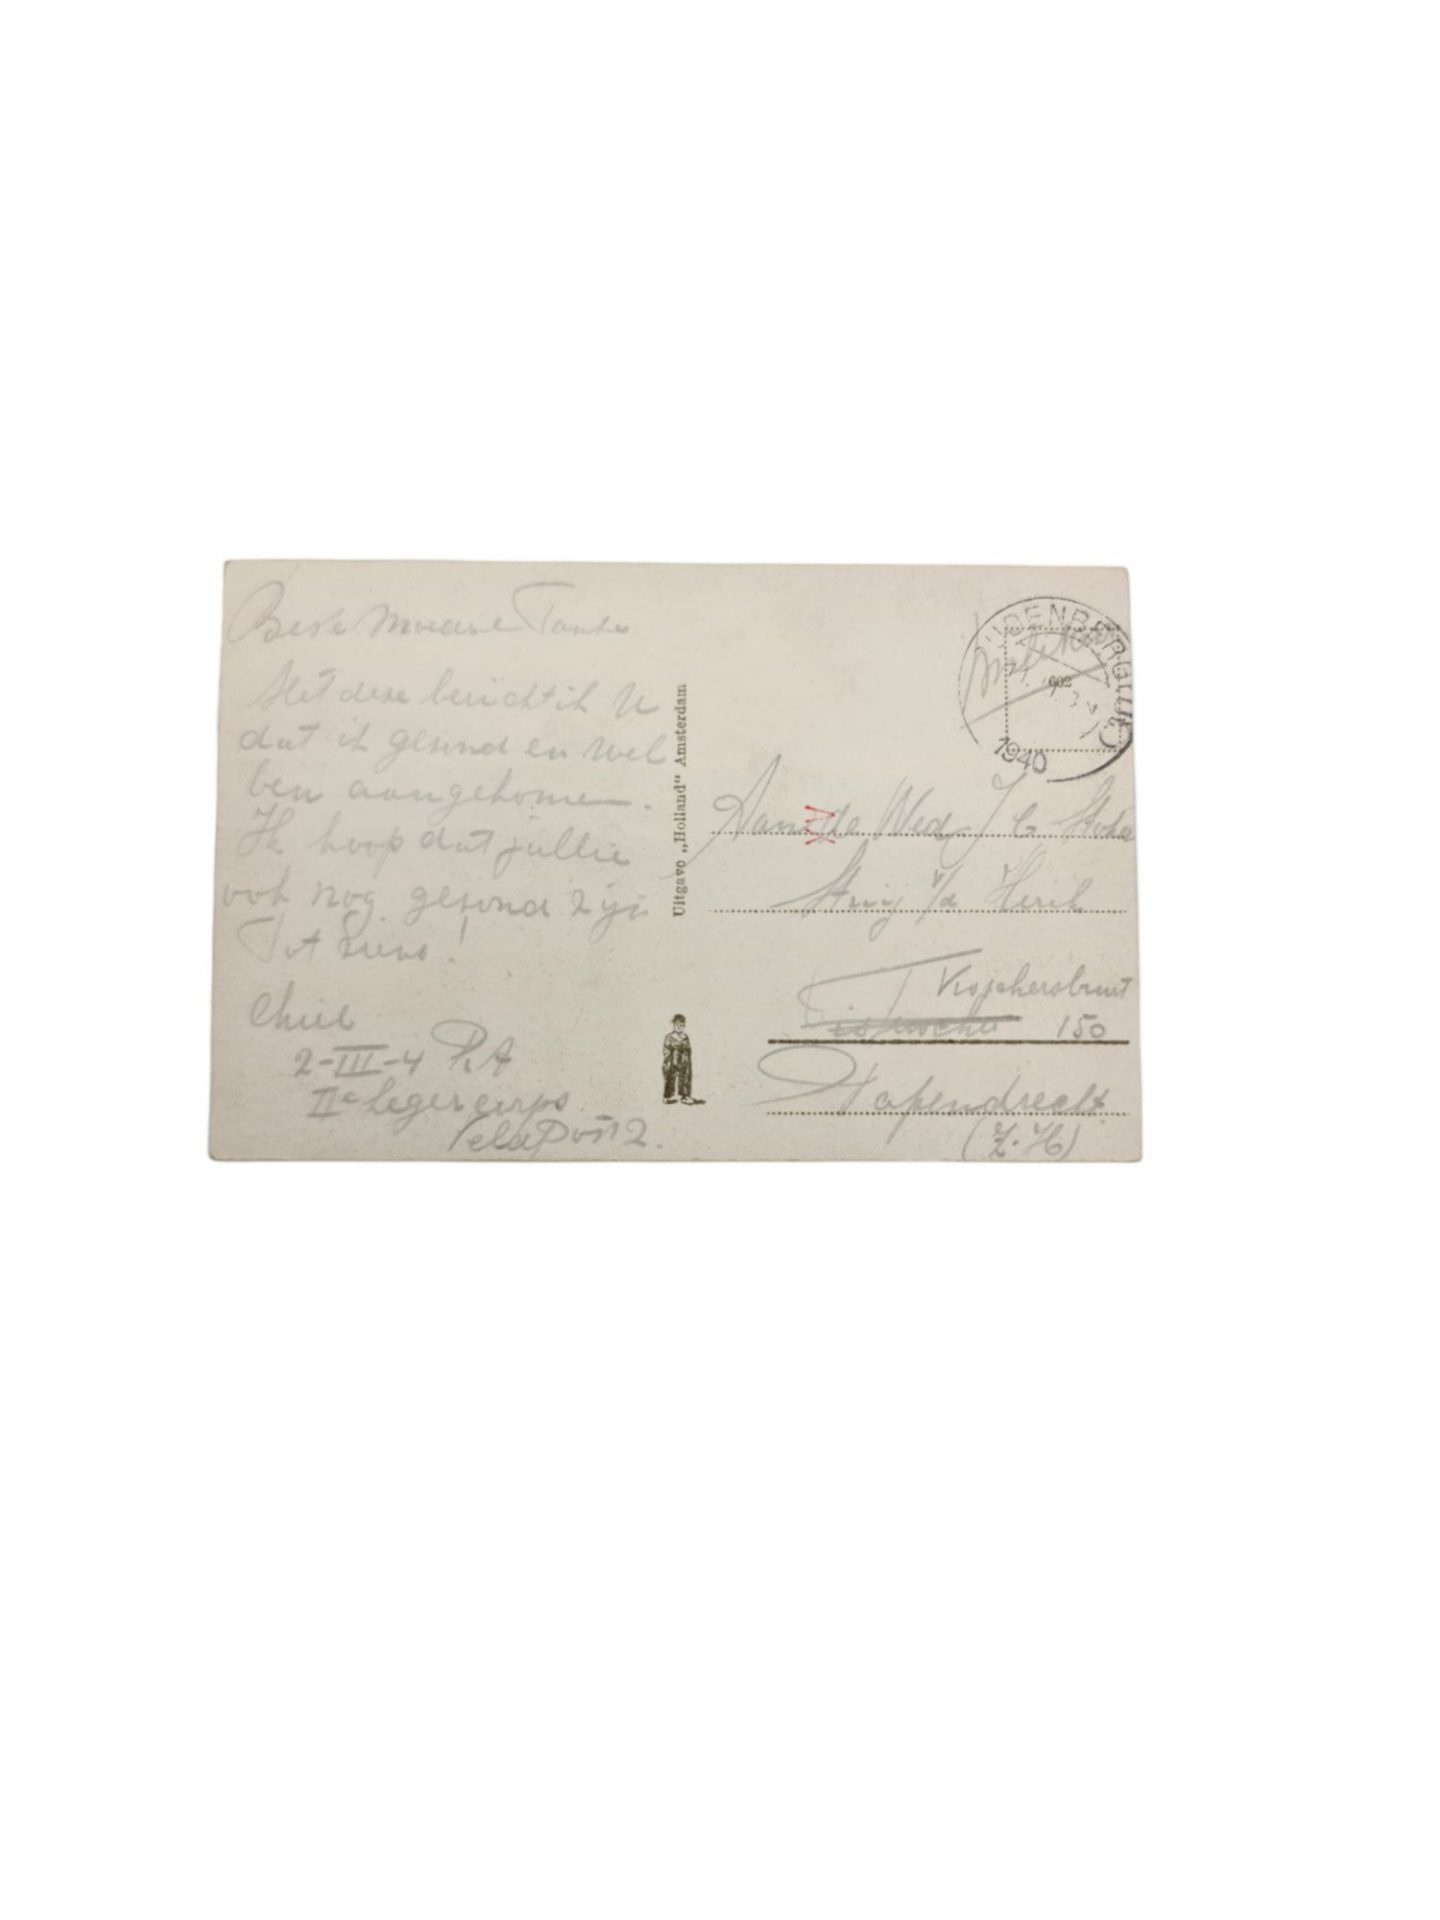 Beste Moeder Tante
Met deze bericht ik U
dat ik gezond en wel
ben aangekomen.
Ik hoop dat jullie
ook nog gezond zijn
Tot ziens!
Chiel
2-III-4 R.A
IIe Legercorps
Veldpost 2.
Uitgave „Holland" Amsterdam
1940
Aan de Wed J C
Visschersbuurt
150
Papendrecht
(Z.H)